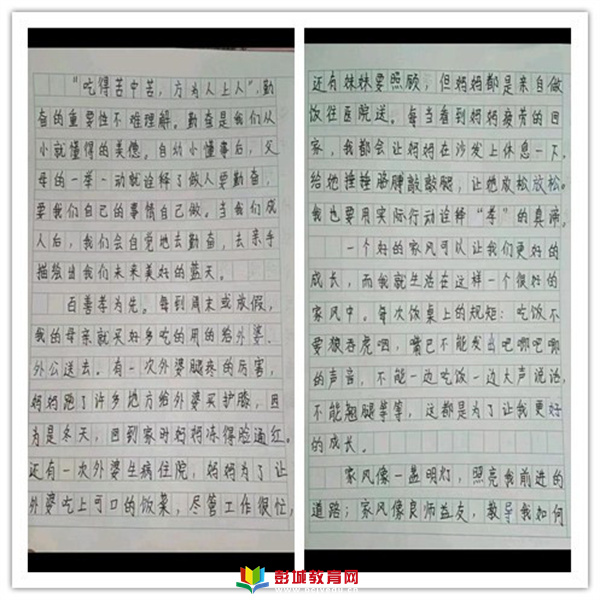 “吃得苦中苦，方为人上人”，勤
奋的重要性不难理解。勤奋是我们从
小就懂得的美德。自幼小懂事后，父
母的一举一动就诠释了做人要勤奋，
要我们自己的事情自己做。当我们成
人后，我们会自觉地去勤奋，去亲手
描绘出我们未来美好的蓝天。
百善孝为先。每到周末或放假，
我的母亲就买好多吃的用的给外婆、
外公送去。有一次外婆腿疼的厉害，
妈妈跑了许多地方给外婆买护膝，因
为是冬天，回到家时妈妈冻得脸通红。
还有一次外婆生病住院，妈妈为了让
外婆吃上可口的饭菜，尽管工作很忙，
还有妹妹要照顾，但妈妈都是亲自做
饭往医院送。每当看到妈妈疲劳的回
家，我都会让妈妈在沙发上休息一下。
给她捶捶胳膊敲敲腿，让她放松放松。
我也要用实际行动诠释“孝”的真谛。
一个好的家风可以让我们更好的
成长，而我就生活在这样一个很好的
家风中。每次饭桌上的规矩：吃饭不
要狼吞虎咽，嘴巴不能发出吧唧吧唧
的声音，不能一边吃饭一边大声说话，
不能翘腿等等，这都是为了让我更好
的成长。
家风像一盏明灯，照亮我前进的
道路；家风像良师益友，教导我如何
彭城教育网